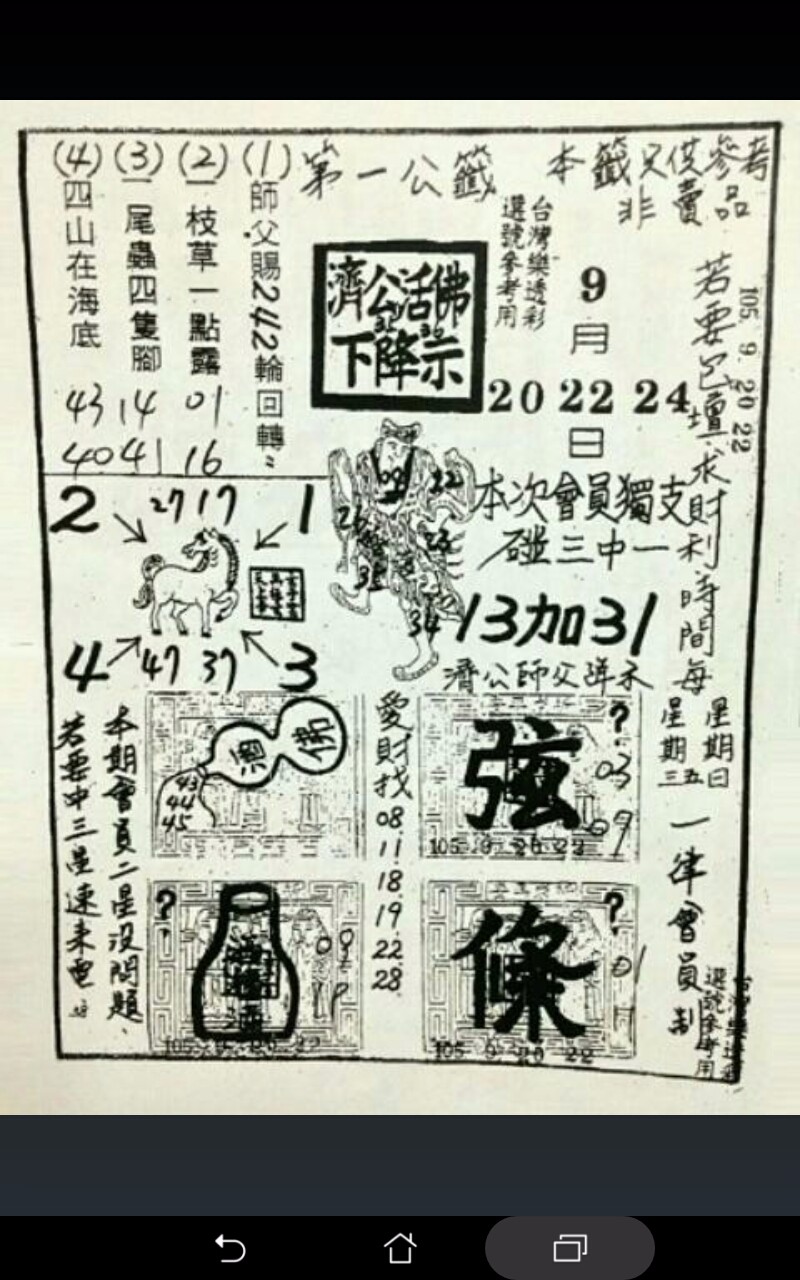 本籤只供參考
非賣品
第一公籤
台灣樂透彩
選號參考用
9
月
20 22 24
日
濟公活佛
下降示
(1)師父賜242輪回轉
(2)一枝草一點露
01
16
(3)一尾蟲四隻腳
14
41
(4)四山在海底
43
40
105 9. 20 22
若要包壇求財利時間每
星期日
星期三五
一律會員制
台灣樂透彩
選號參考用
2
27 17
1
4
47 37
3
22
34
本次會員獨支
碰三中一
13加31
濟公師父降示
佛
43
44
45
愛財找
08
11
18
19
22
28
?
弦
03
09
105 9 20 22
?
09
?
條
01
105 9 20 22
本期會員二星沒問題、
若要中三星速來電